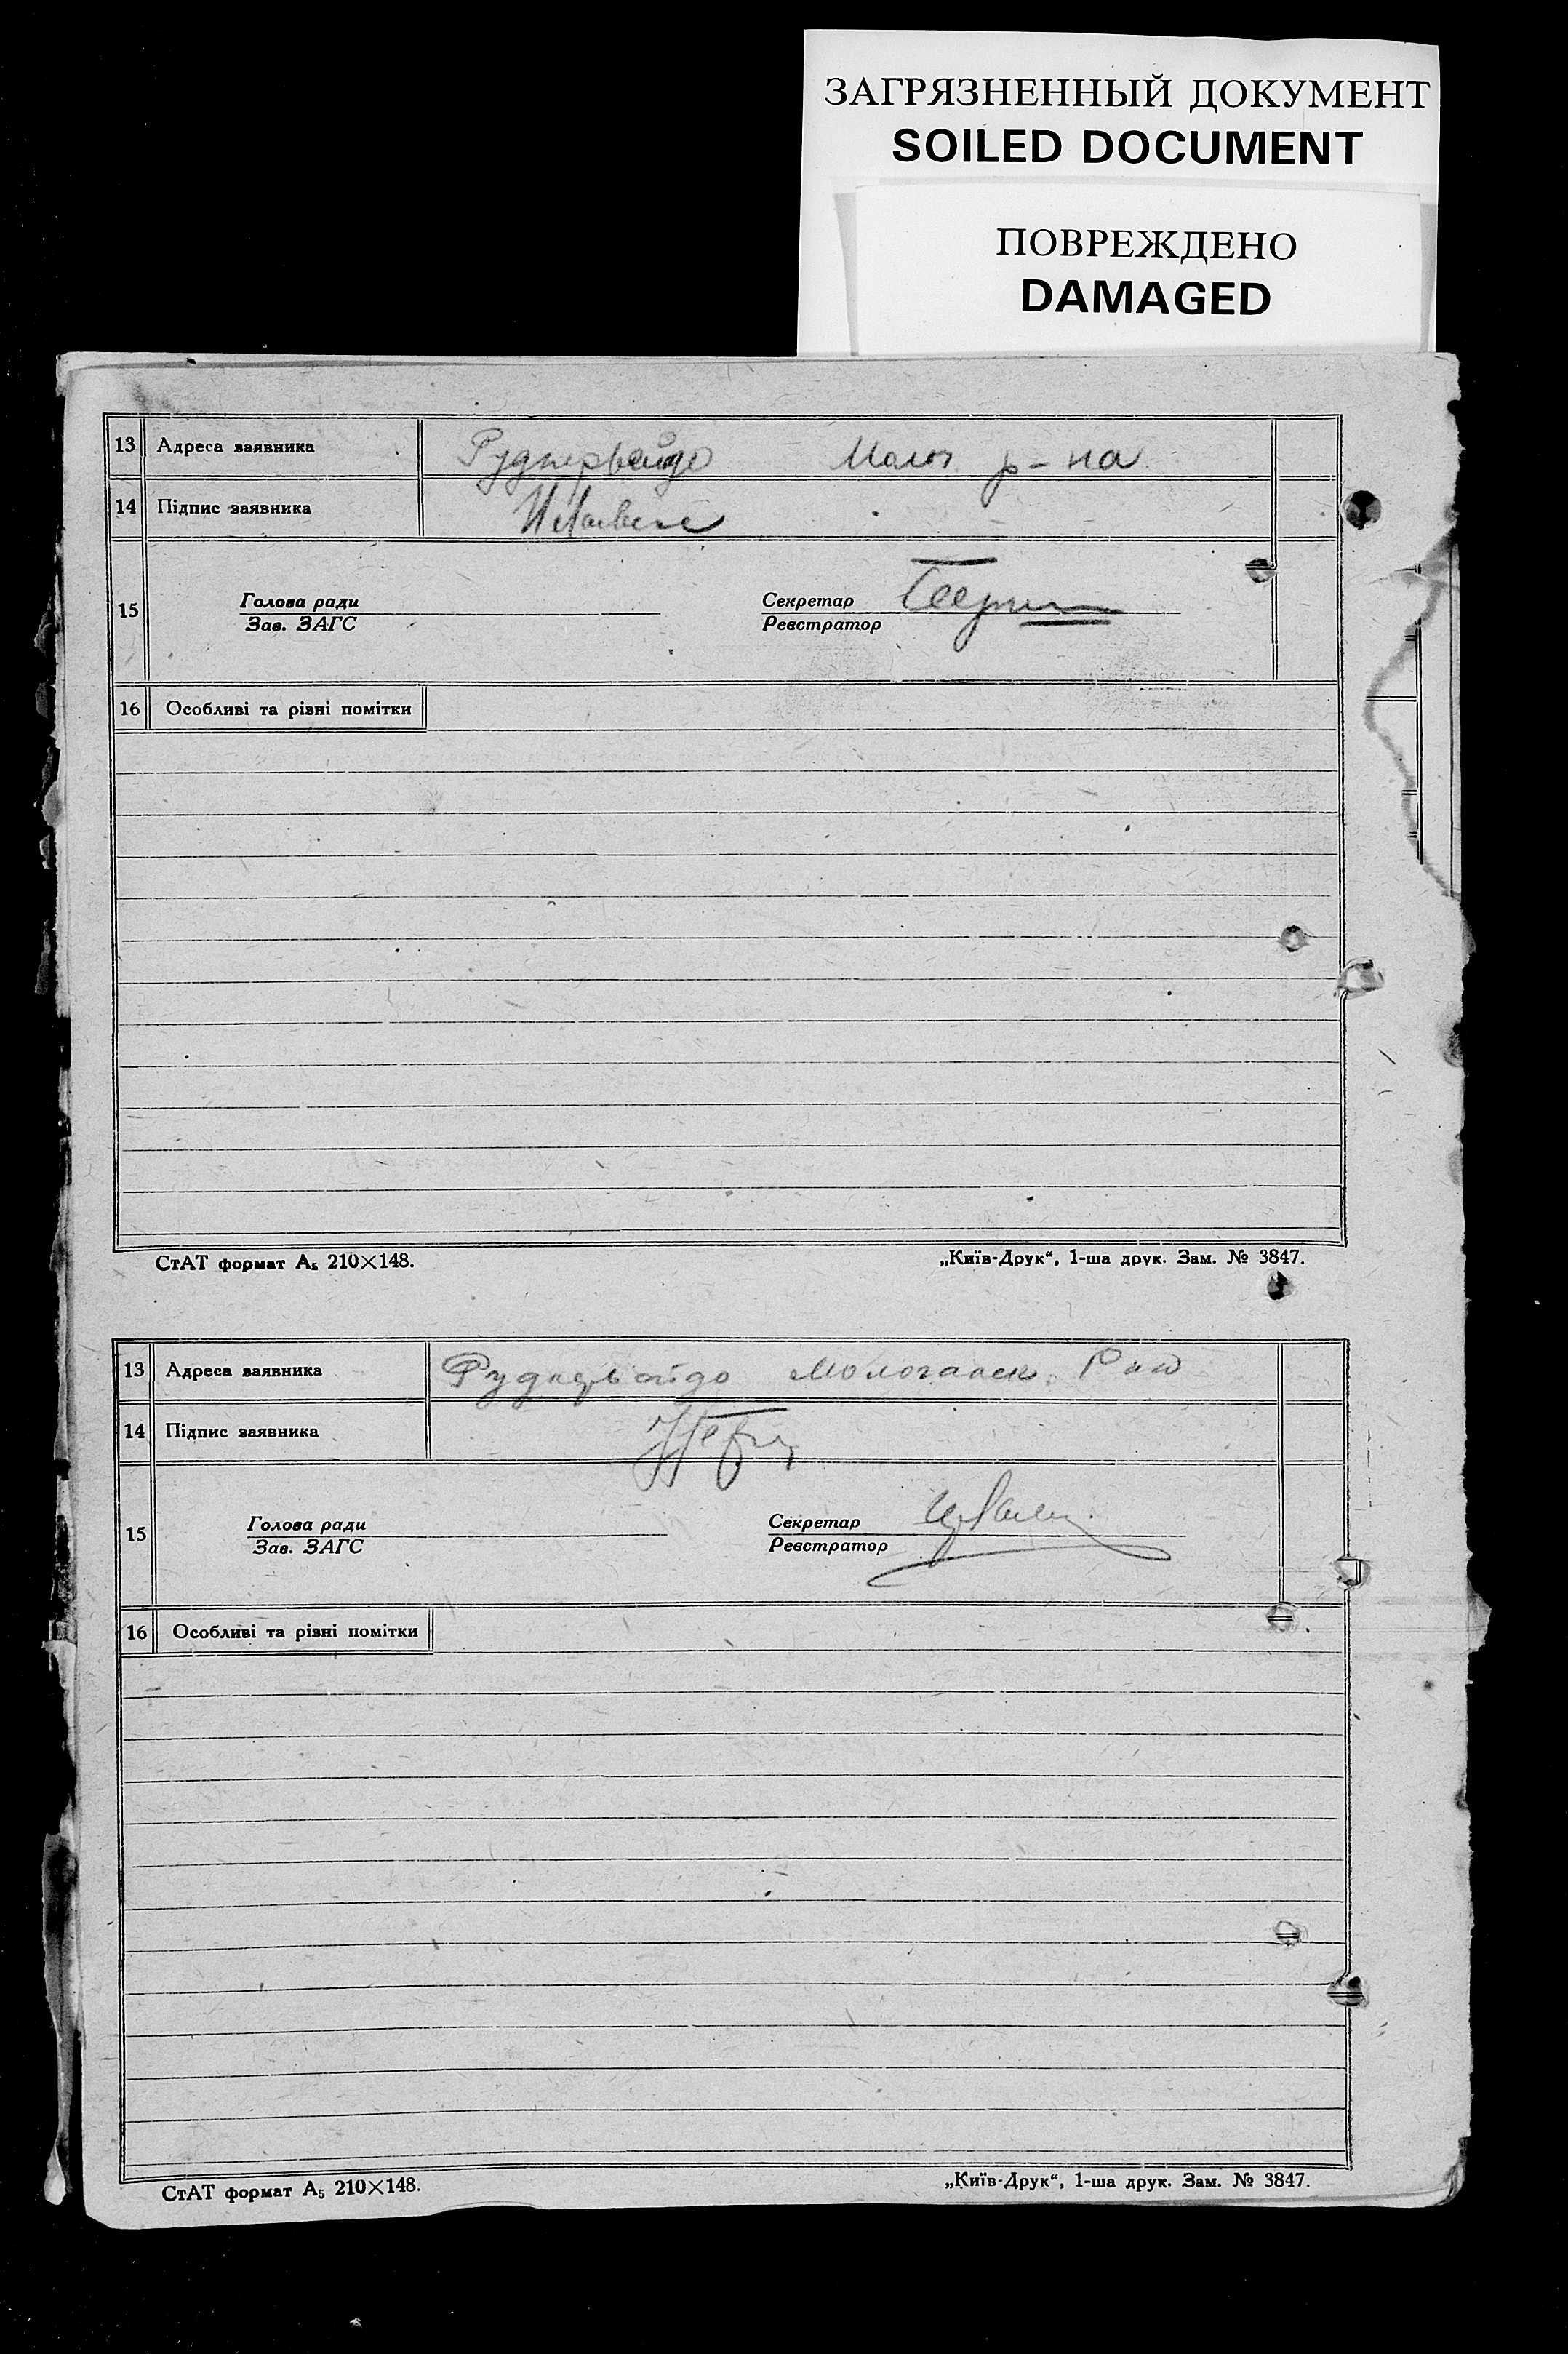 ЗАГРЯЗНЕННЫЙ ДОКУМЕНТ
SOILED DOCUMENT
ПОВРЕЖДЕНО
DAMAGED
13 Адреса заявника р-на
14 Підпис заявника
Голова ради Секретар
15
Зав. ЗАГС Реєстратор
16 Особливі та різні помітки
СтАТ формат А₅ 210×148. „Київ-Друк“, 1-ша друк. Зам. № 3847.
13 Адреса заявника
14 Підпис заявника
Голова ради Секретар
15
Зав. ЗАГС Реєстратор
16 Особливі та різні помітки
СтАТ формат А₅ 210×148. „Київ-Друк“, 1-ша друк. Зам. № 3847.